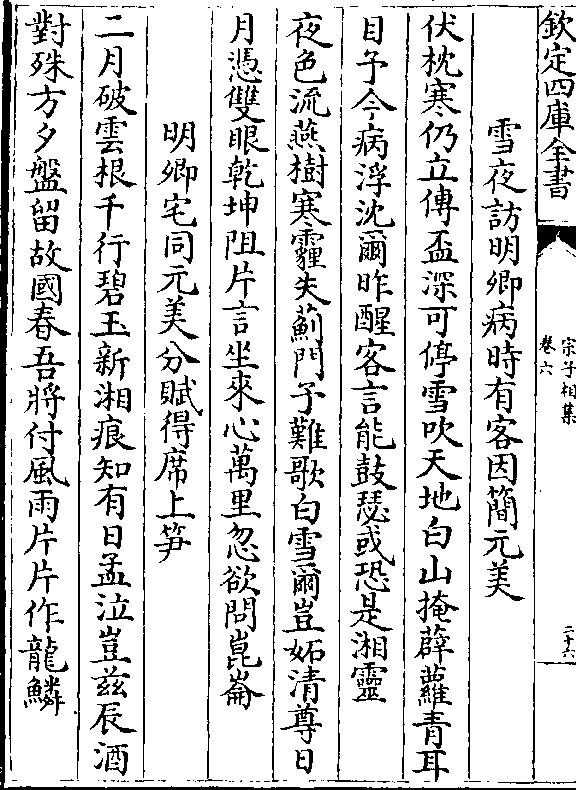 欽定四庫全書
宗子相集
卷六
二十六
雪夜訪明卿病時有客因簡元美
伏枕寒仍立傳盃深可停雪吹天地白山掩薜蘿青耳
目予今病浮沈爾昨醒客言能鼓瑟或恐是湘靈
夜色流燕樹寒霾失薊門子難歌白雪爾豈妬清尊日
月憑雙眼乾坤阻片言坐來心萬里忽欲問崑崙
明卿宅同元美分賦得席上笋
二月破雲根千行碧玉新湘痕知有日孟泣豈茲辰酒
對殊方夕盤留故國春吾將付風雨片片作龍鱗